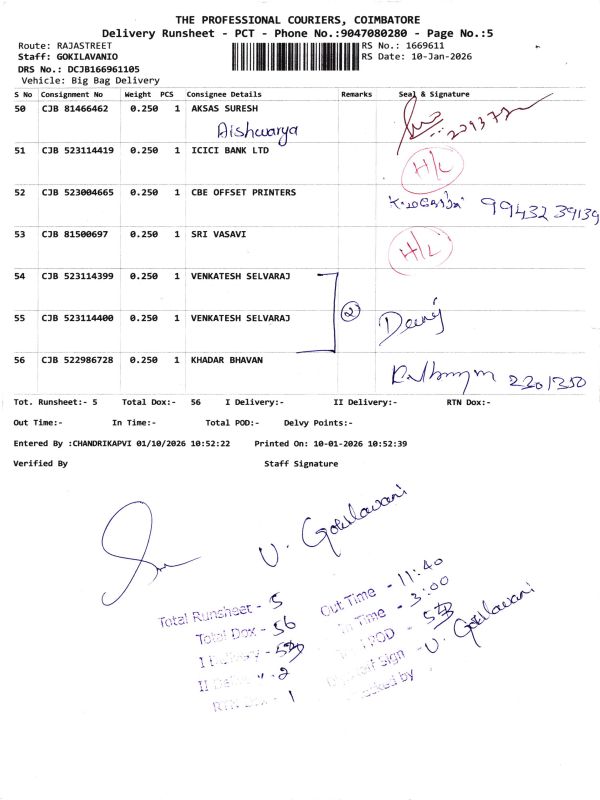 THE PROFESSIONAL COURIERS, COIMBATORE
Delivery Runsheet - PCT - Phone No.:9047080280 - Page No.:5
Route: RAJASTREET RS No.: 1669611
Staff: GOKILAVANIO RS Date: 10-Jan-2026
DRS No.: DCJB166961105
Vehicle: Big Bag Delivery
S No Consignment No Weight PCS Consignee Details Remarks Seal & Signature
50 CJB 81466462 0.250 1 AKSAS SURESH
Aishwarya
51 CJB 523114419 0.250 1 ICICI BANK LTD H/L
52 CJB 523004665 0.250 1 CBE OFFSET PRINTERS 99432 39139
53 CJB 81500697 0.250 1 SRI VASAVI H/L
54 CJB 523114399 0.250 1 VENKATESH SELVARAJ
2
55 CJB 523114400 0.250 1 VENKATESH SELVARAJ
56 CJB 522986728 0.250 1 KHADAR BHAVAN 2201350
Tot. Runsheet:- 5 Total Dox:- 56 I Delivery:- II Delivery:- RTN Dox:-
Out Time:- In Time:- Total POD:- Delvy Points:-
Entered By :CHANDRIKAPVI 01/10/2026 10:52:22 Printed On: 10-01-2026 10:52:39
Verified By Staff Signature
V. Gokilavani
Total Runsheet - 5 Out Time - 11:40
Total Dox - 56 In Time - 3:00
I Delivery - POD -
II - 2 Sign - V. Gokilavani
RTN Dox - 1 by